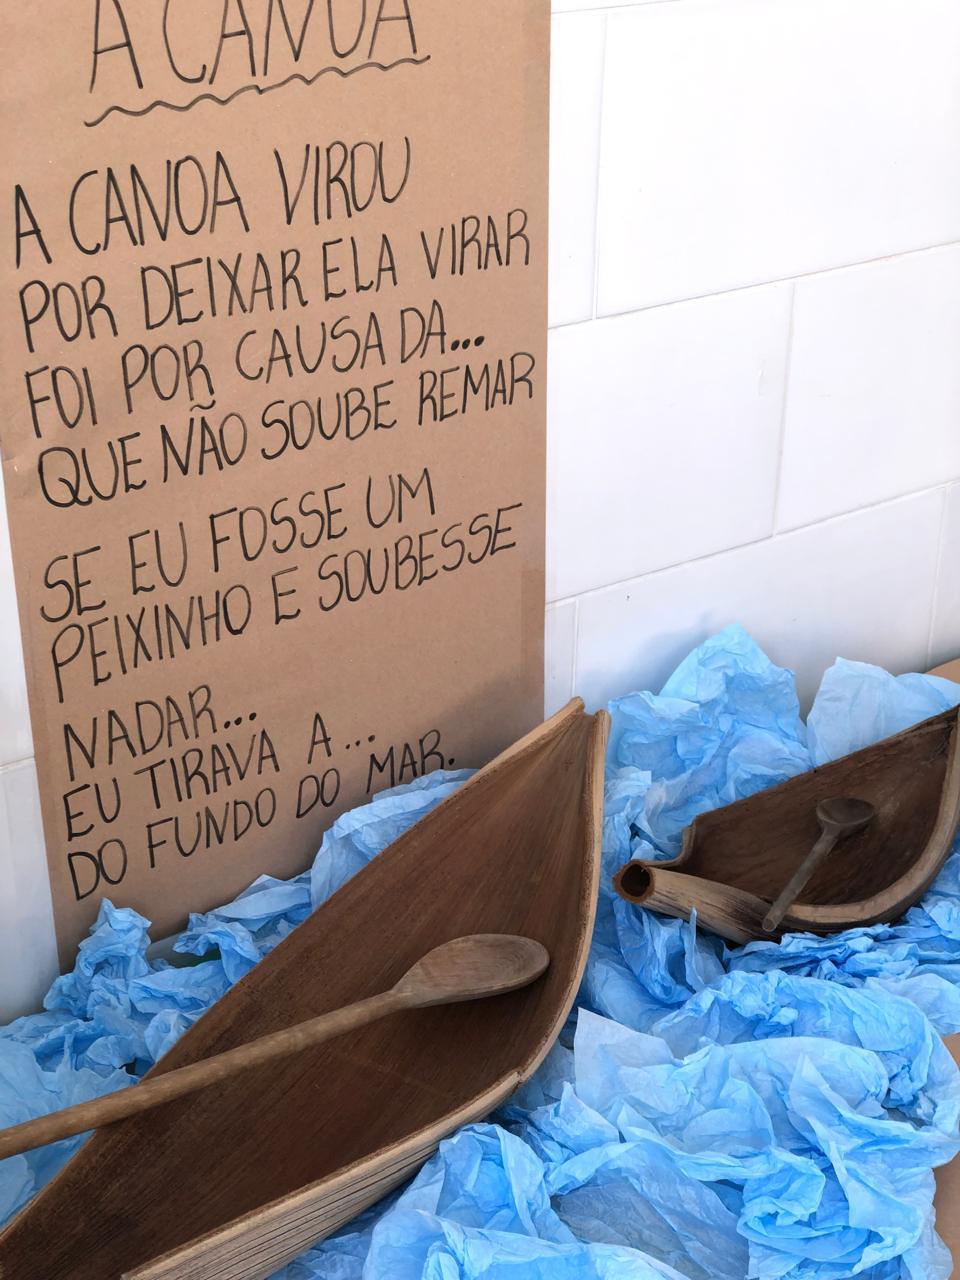 A CANOA
A CANOA VIROU
POR DEIXAR ELA VIRAR
FOI POR CAUSA DA...
QUE NÃO SOUBE REMAR
SE EU FOSSE UM
PEIXINHO E SOUBESSE
NADAR...
EU TIRAVA A...
DO FUNDO DO MAR.